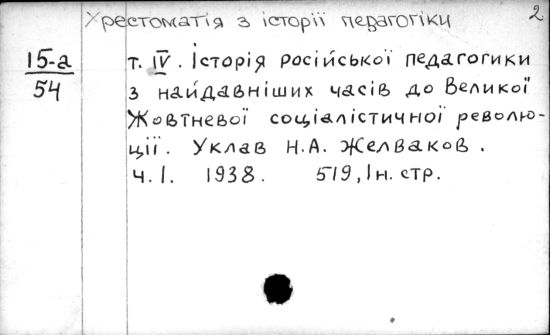 Хрестоматія з історії педагогіки
2
15-а
54
т. IV. Історія російської педагогики
з найдавніших часів до Великої
Жовтневої соціалістичної револю-
ції. Уклав Н.А. Желваков.
ч. І. 1938. 519, Ін. стр.